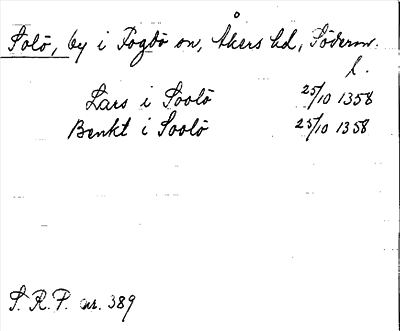 Solö, by i Fogdö sn, Åkers hd, Söderm.
l.
Lars i Soolö 25/10 1358
Benkt i Soolö 25/10 1358
S. R. P. nr. 389